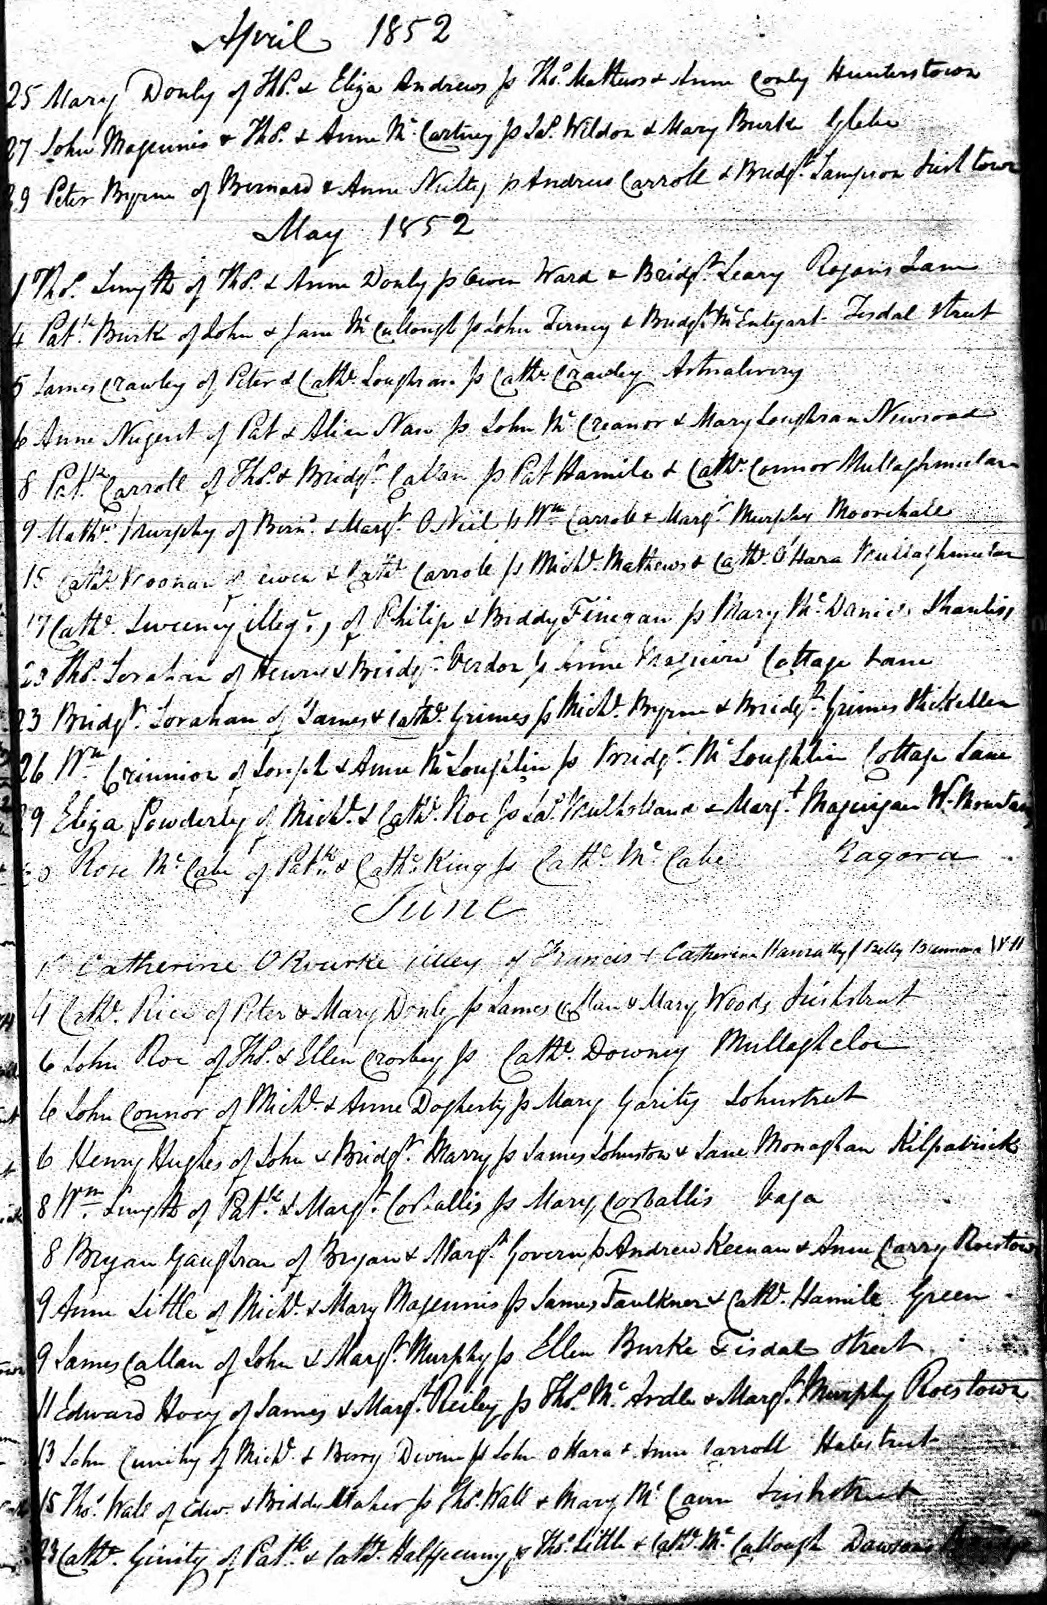 April 1852
25 Mary Donly of Thos. & Eliza Andrews ss Thos. Mathews & Anne Conly Hunterstown
27 John Magennis & Thos. & Anne Mc Cartney ss Jas. Weldon & Mary Burke Glebe
29 Peter Byrne of Bernard & Anne Nulty ss Andrew Carroll & Bridgt. Sampson Irishtown
May 1852
1 Thos. Smyth of Thos. & Anne Donly ss Owen Ward & Bridgt. Leary Rogans Lane
4 Patk. Burke of John & Jane Mc Cullough ss John Tierney & Bridgt. Mc Entegart Tisdal Street
5 James Crawley of Peter & Cathe. Loughran ss Cathe. Crawley Artnalivery
6 Anne Nugent of Pat & Alice Nase ss John Mc Creanor & Mary Loughran Newroad
8 Patk. Carroll of Thos. & Bridgt. Callan ss Pat Hamile & Cathe. Connor Mullaghmulan
9 Mathw. Murphy of Bernd. & Margt. O Neil ss Wm. Carroll & Margt. Murphy Moorehall
15 Cathe. Noonan of Owen & Cathe. Carroll ss Michl. Mathews & Cathe. O'Hara Mullaghmulan
17 Cathe. Sweeney (illegt.) of Philip & Biddy Finegan ss Mary Mc Daniel Shanliss
Thos. Torahan of Henry & Bridgt. Verdon ss Anne Maguire Cottage Lane
23 Bridgt. Torahan of James & Cathe. Grimes ss Michl. Byrne & Bridgt. Grimes Mickellen
26 Wm. Crinnion of Joseph & Anne Mc Loughlin ss Bridgt. Mc Loughlin Cottage Lane
29 Eliza Powderly of Michl. & Cathe. Roe ss Jas. Mulholland & Margt. Maguigan W. Mountain
30 Rose Mc Cabe of Patk. & Cathe. King ss Cathe. Mc Cabe Ragora
June
1st Catherine O'Rourke illeg of Francis & Catherine Hanratty ss Betty Brennan WH
4 Cathe. Rice of Peter & Mary Donly ss James Callan & Mary Woods Irishstreet
6 John Roe of Thos. & Ellen Crosbey ss Cathe. Downey Mullaghcloe
6 John Connor of Michl. & Anne Dogherty ss Mary Garity Johnstreet
6 Henry Hughes of John & Bridgt. Marry ss James Johnston & Jane Monaghan Kilpatrick
8 Wm. Smyth of Patk. & Margt. Corballis ss Mary Corballis
8 Bryan Gaughran of Bryan & Margt. Govern ss Andrew Keenan & Anne Carry Roestown
9 Anne Little of Michl. & Mary Magennis ss James Faulkner & Cathe. Hamile Green
9 James Callan of John & Margt. Murphy ss Ellen Burke Tisdal Street
11 Edward Hoey of James & Margt. Reiley ss Thos. Mc Ardle & Margt. Murphy Roestown
13 John Cunihy of Michl. & Berry Devine ss John O Hara & Anne Carroll Halestreet
15 Thos. Wall of Edw. & Biddy Maher ss Thos. Wall & Mary Mc Cann Irishstreet
23 Cathe. Ginity of Patk. & Cathe. Halfpenny ss Thos. Little & Cathe. Mc Cullough Dawsons